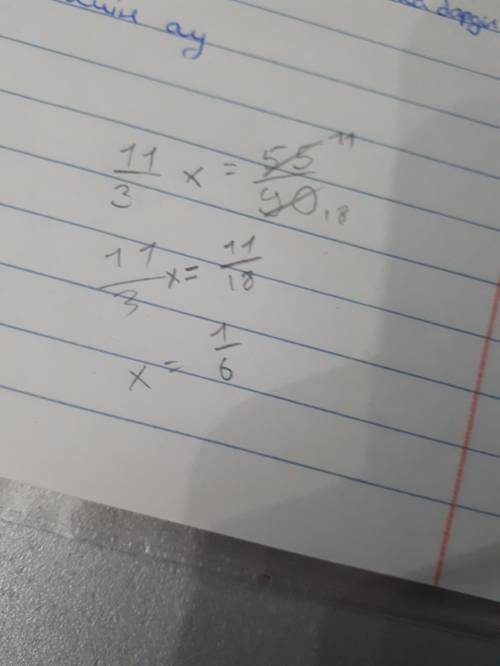 ау
11/3 x = 55/90 11 18
11/3 x = 11/18
x = 1/6